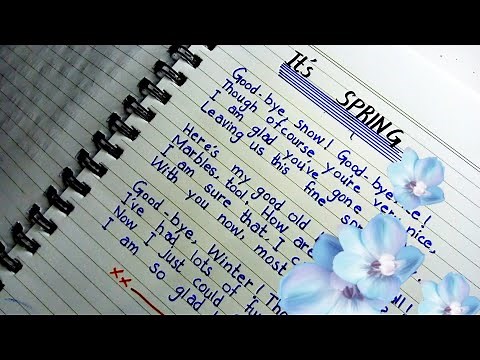 It's SPRING
Good-bye, Snow! Good-bye,
Though ofcourse you're very nice,
I am glad you've gone
Leaving us this fine
Here's my good old
Marbles, too!, How are
I am sure that I
With you now, most
Good-bye, Winter!
I've had lots of
Now I just could
I am so glad
xx